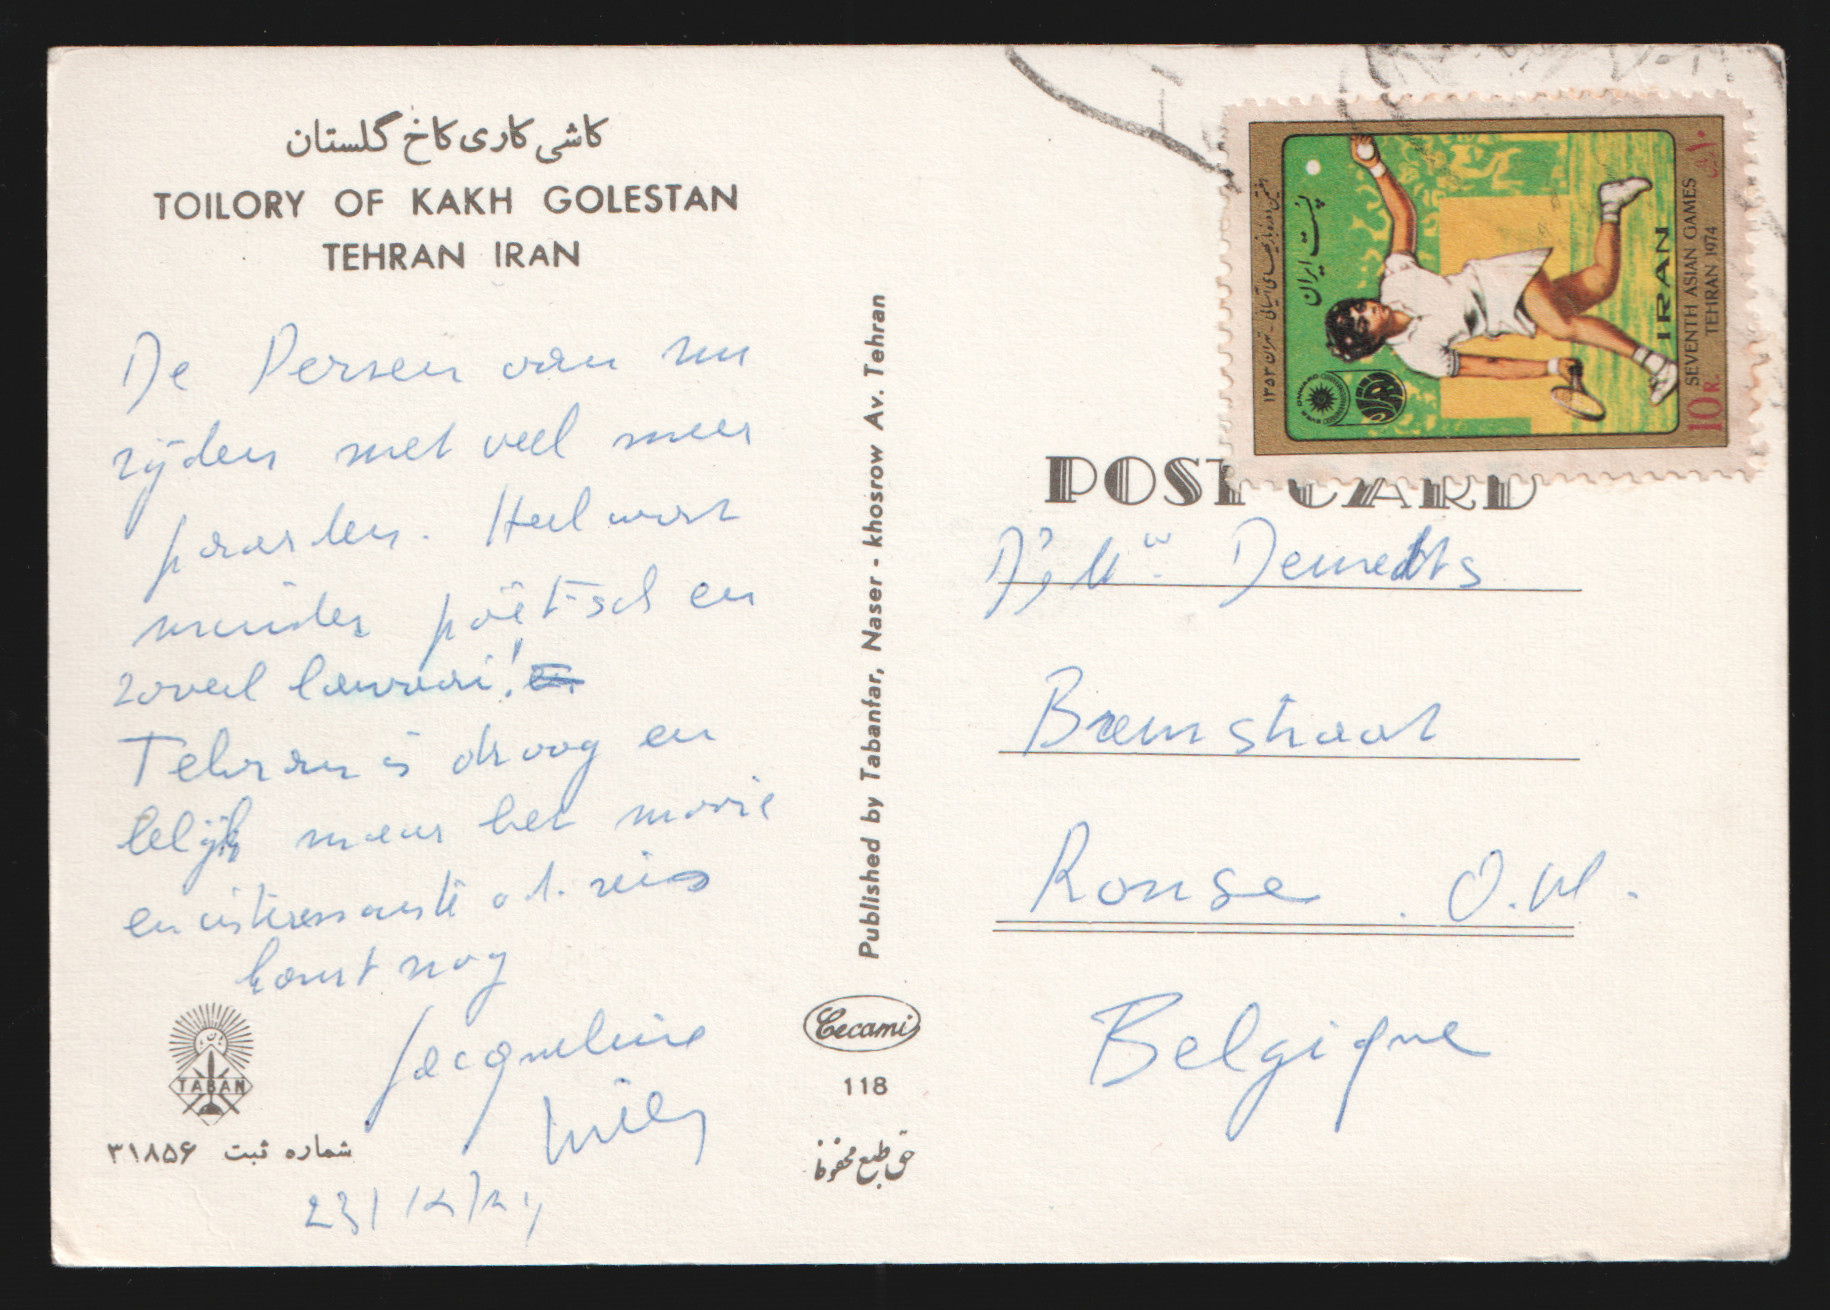 کاشی کاری کاخ گلستان
TOILORY OF KAKH GOLESTAN
TEHRAN IRAN
De Persen van nu
rijden met veel meer
paarden. Heel wat
minder poëtisch en
zoveel lawaai!
Teheran is droog en
lelijk maar het mooie
en interessante v.d. reis
komt nog
Jacqueline
Willy
TABAN
شماره ثبت ۳۱۸۵۶
Published by Tabanfar, Naser - khosrow Av. Tehran
Cecami
118
حق طبع محفوظ
هفتمین دوره بازیهای آسیائی - تهران ۱۳۵۳
پست ایران
IRAN
SEVENTH ASIAN GAMES
TEHRAN 1974
10 R.
۱۰
POST CARD
Bremstraat
Ronse O.Vl.
Belgique